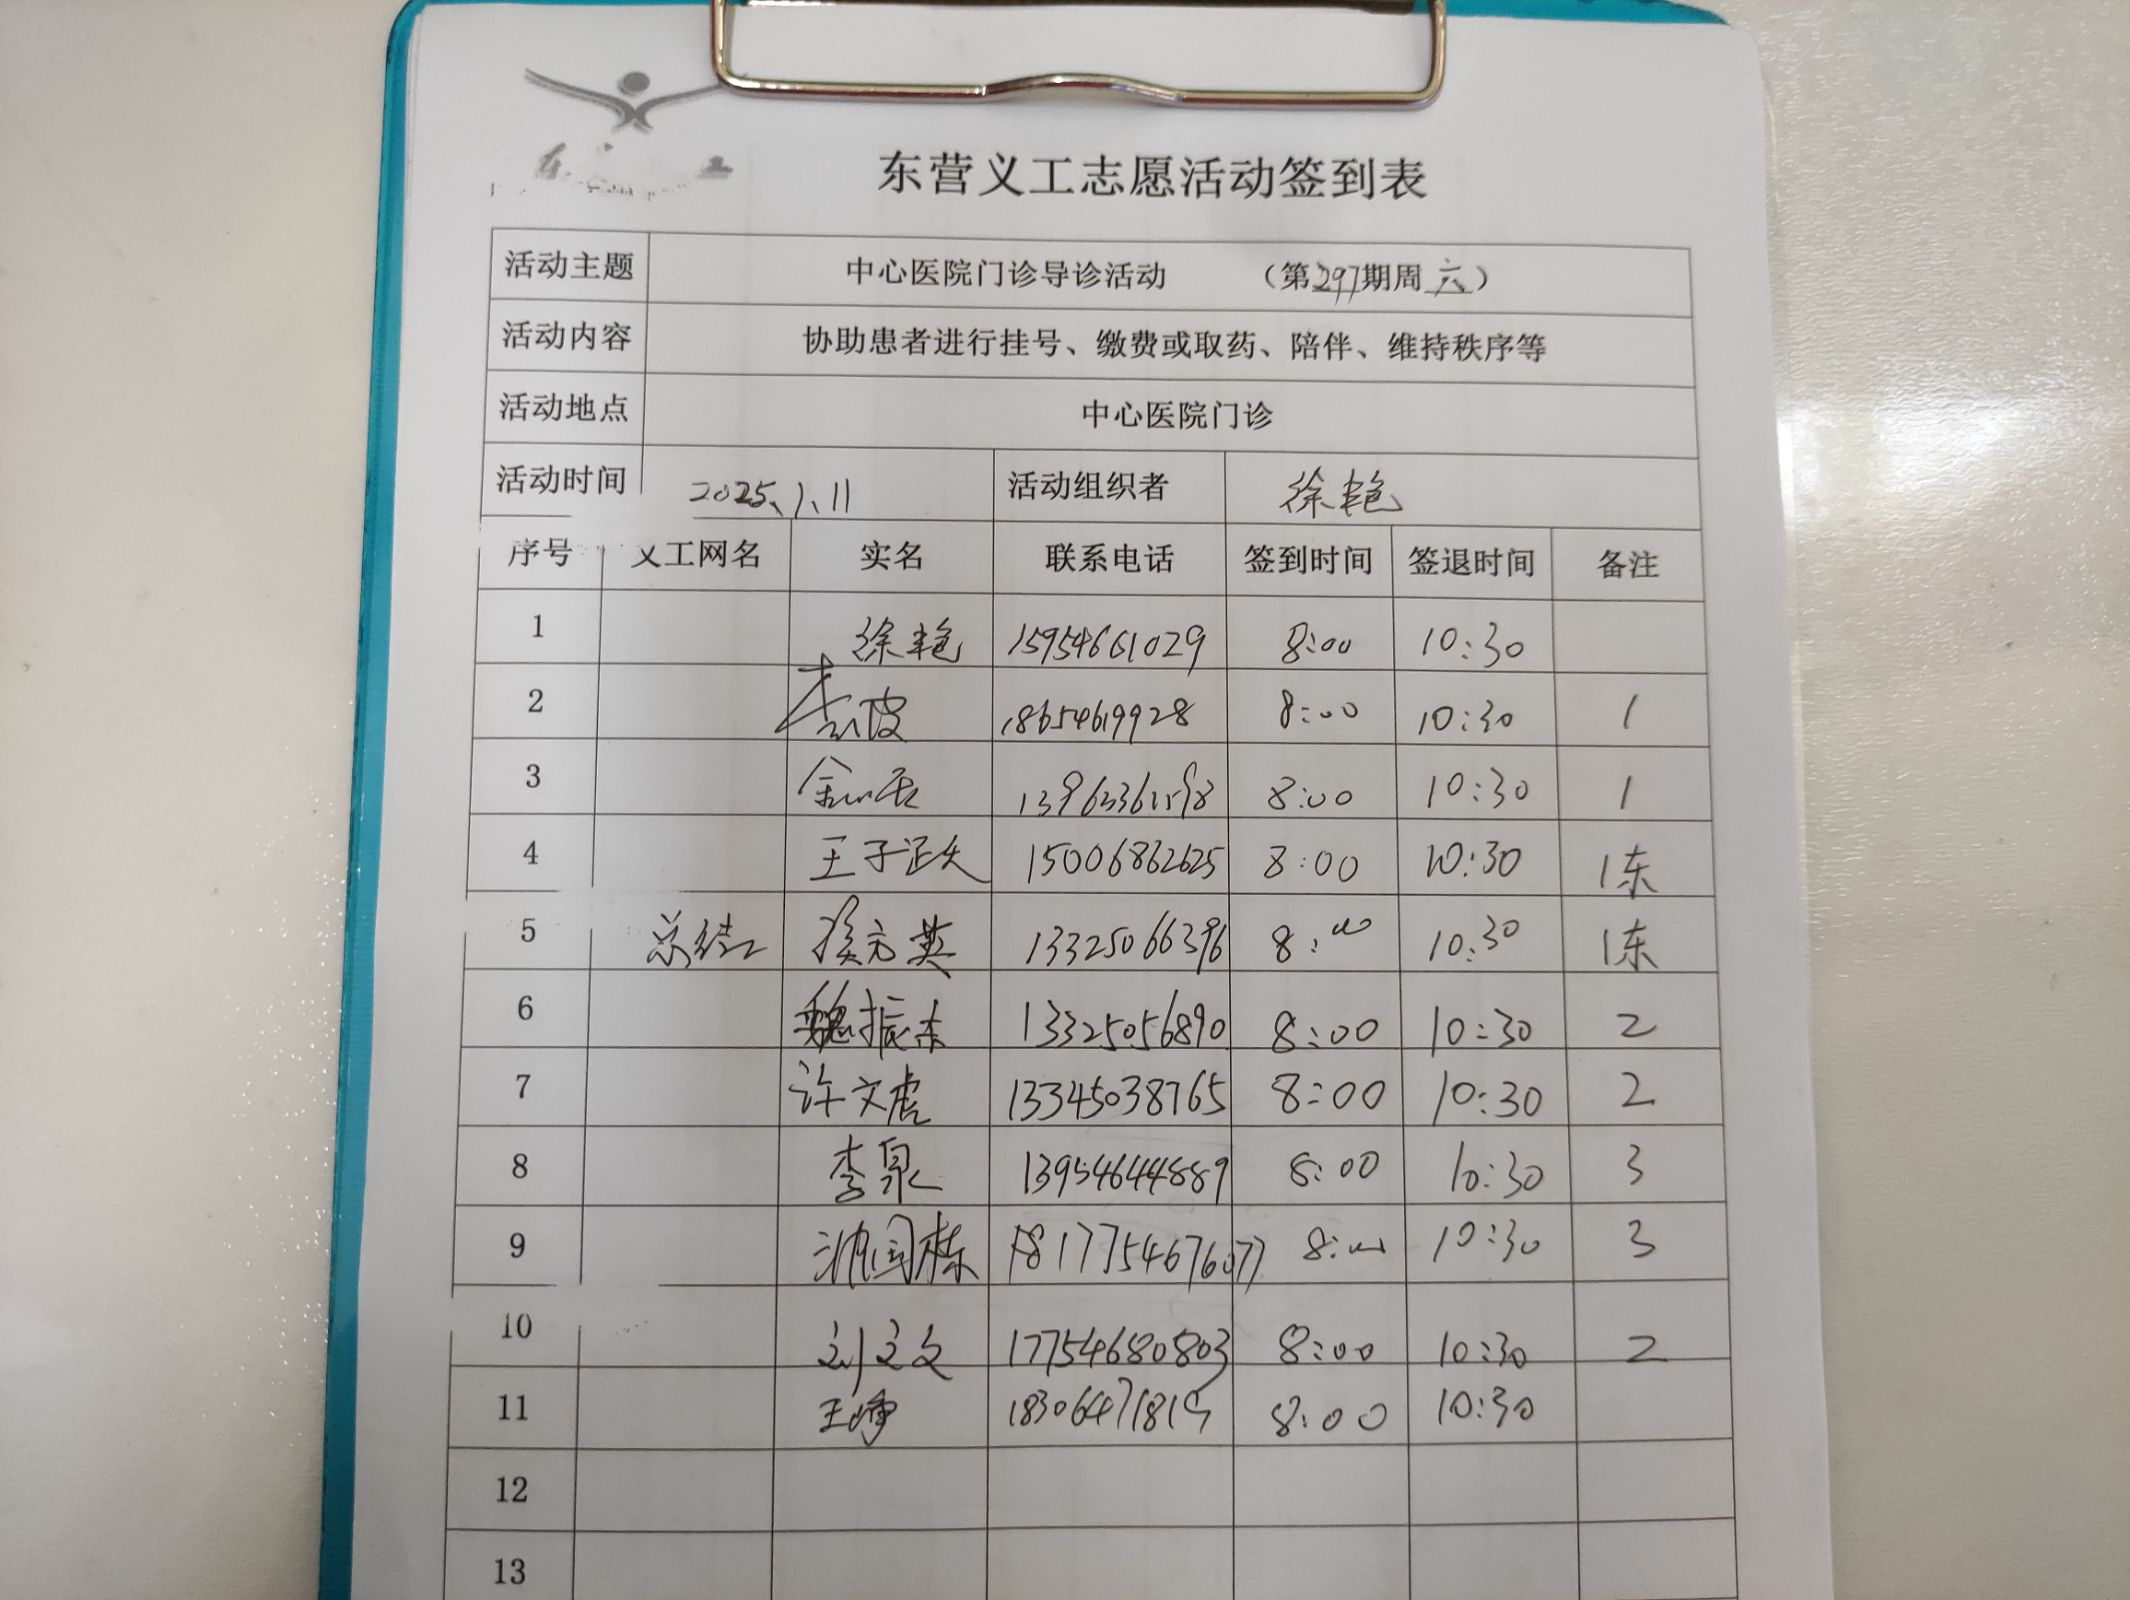 东营义工志愿活动签到表
活动主题 中心医院门诊导诊活动 （第297期周六）
活动内容 协助患者进行挂号、缴费或取药、陪伴、维持秩序等
活动地点 中心医院门诊
活动时间 2025.1.11 活动组织者 徐艳
序号 义工网名 实名 联系电话 签到时间 签退时间 备注
1 徐艳 15954661029 8:00 10:30
2 18654619928 8:00 10:30 1
3 8:00 10:30 1
4 王子跃 15006862625 8:00 10:30 1东
5 总结 方英 13325066396 8:00 10:30 1东
6 魏振东 13325056890 8:00 10:30 2
7 许文虎 13345038765 8:00 10:30 2
8 李泉 13954644889 8:00 10:30 3
9 国栋 8:00 10:30 3
10 刘文文 17754680803 8:00 10:30 2
11 王峥 8:00 10:30
12
13